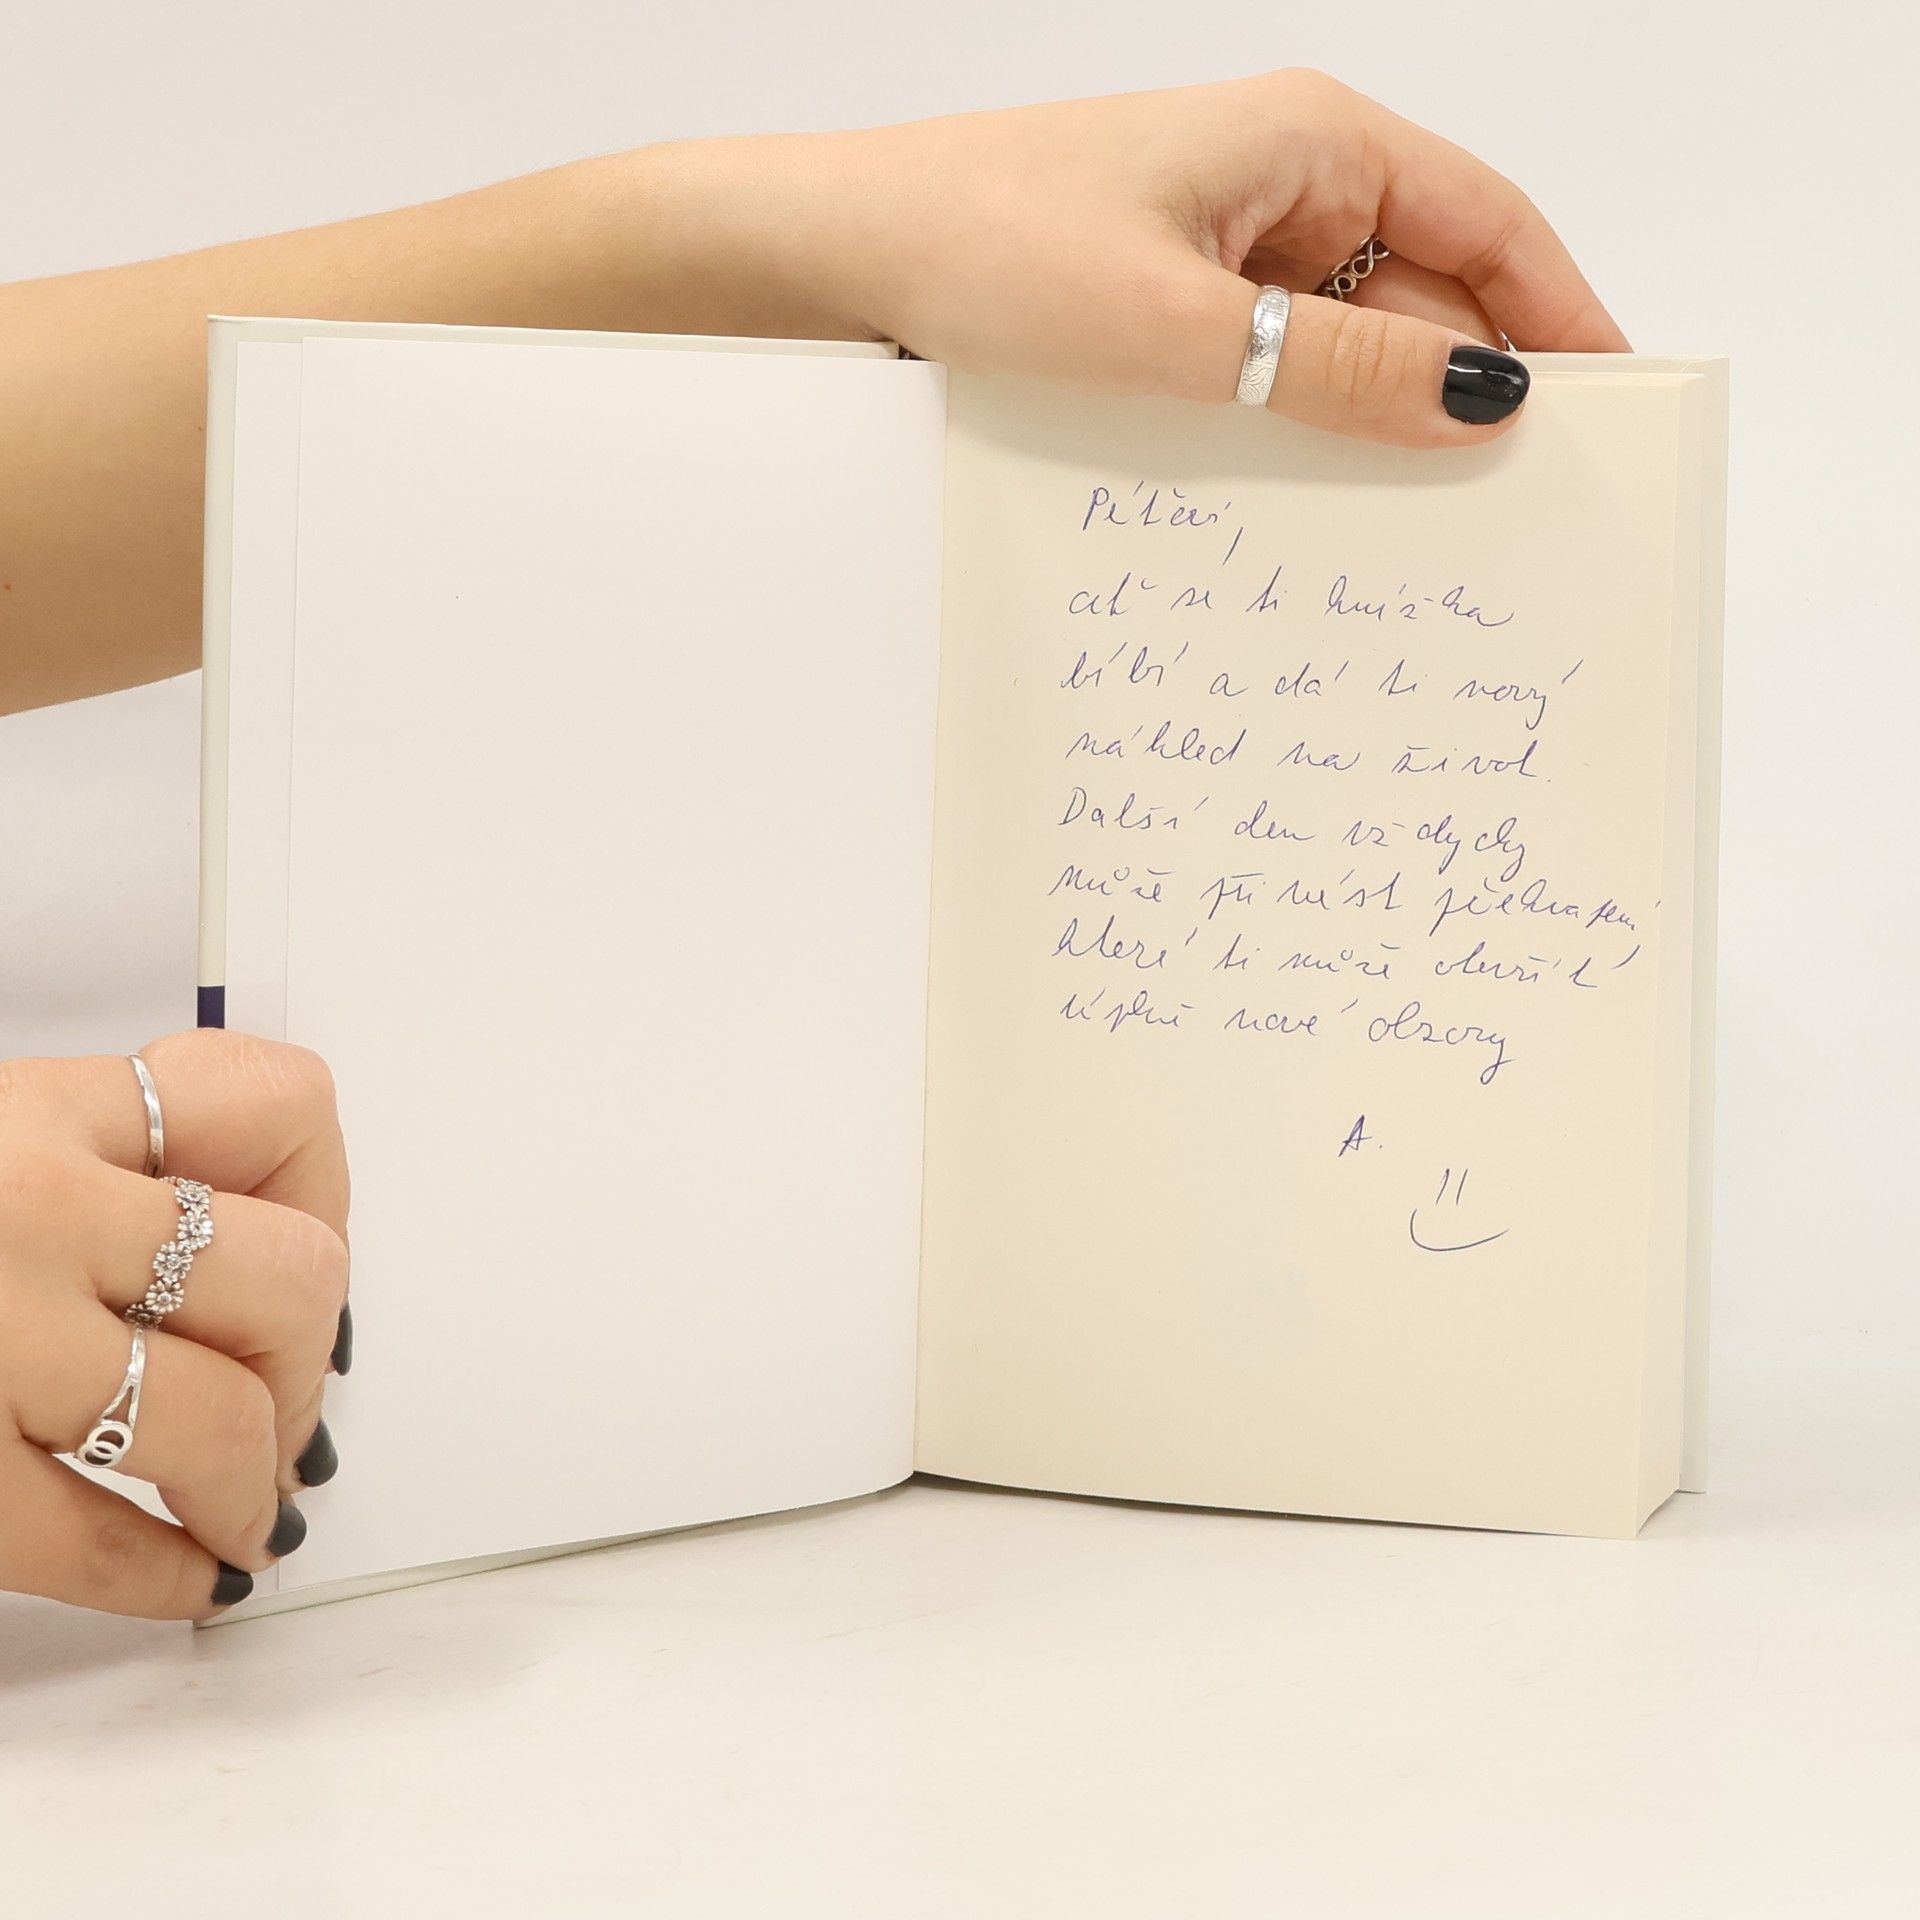 Pétěři,
ať se ti knížka
líbí a dá ti nový
náhled na život.
Další den vždycky
může přinést překvapení,
které ti může otevřít
úplně nové obzory
A.